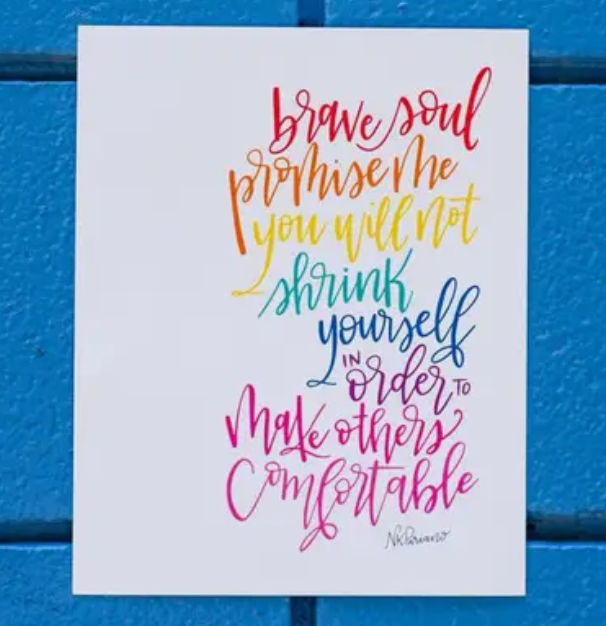 brave soul
promise me
you will not
shrink
yourself
IN order TO
make others
comfortable
NKPariano